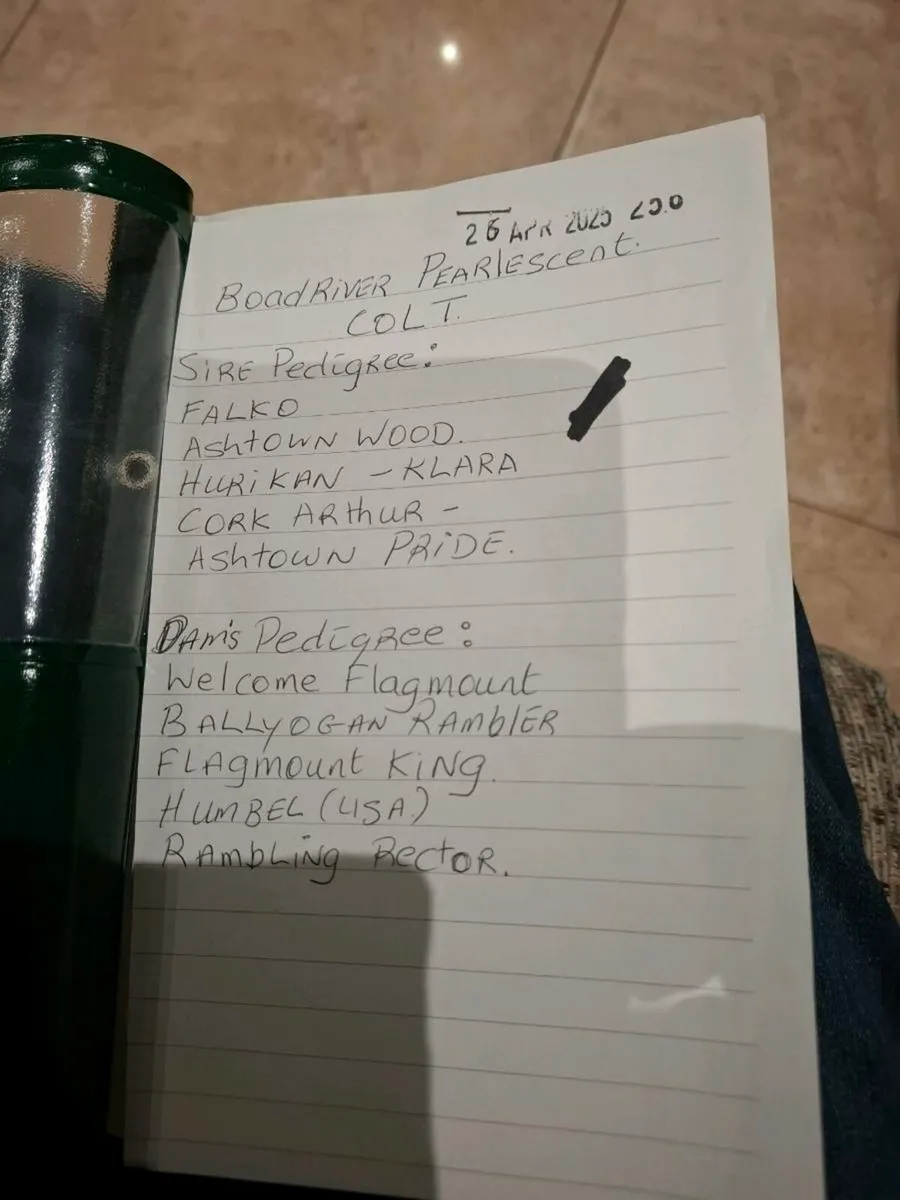 26 APR 2025 25.0
BoadRiver Pearlescent.
COLT.
SiRE Pedigree:
FALKO
Ashtown WOOD.
HURiKAN - KLARA
CORK ARthUR -
Ashtown PRiDE.
DAM's Pedigree:
Welcome Flagmount
BALLYOGAN RAMblER
FLAgmount KiNg.
HUMBEL (USA.)
RAMbLiNg RectOR.